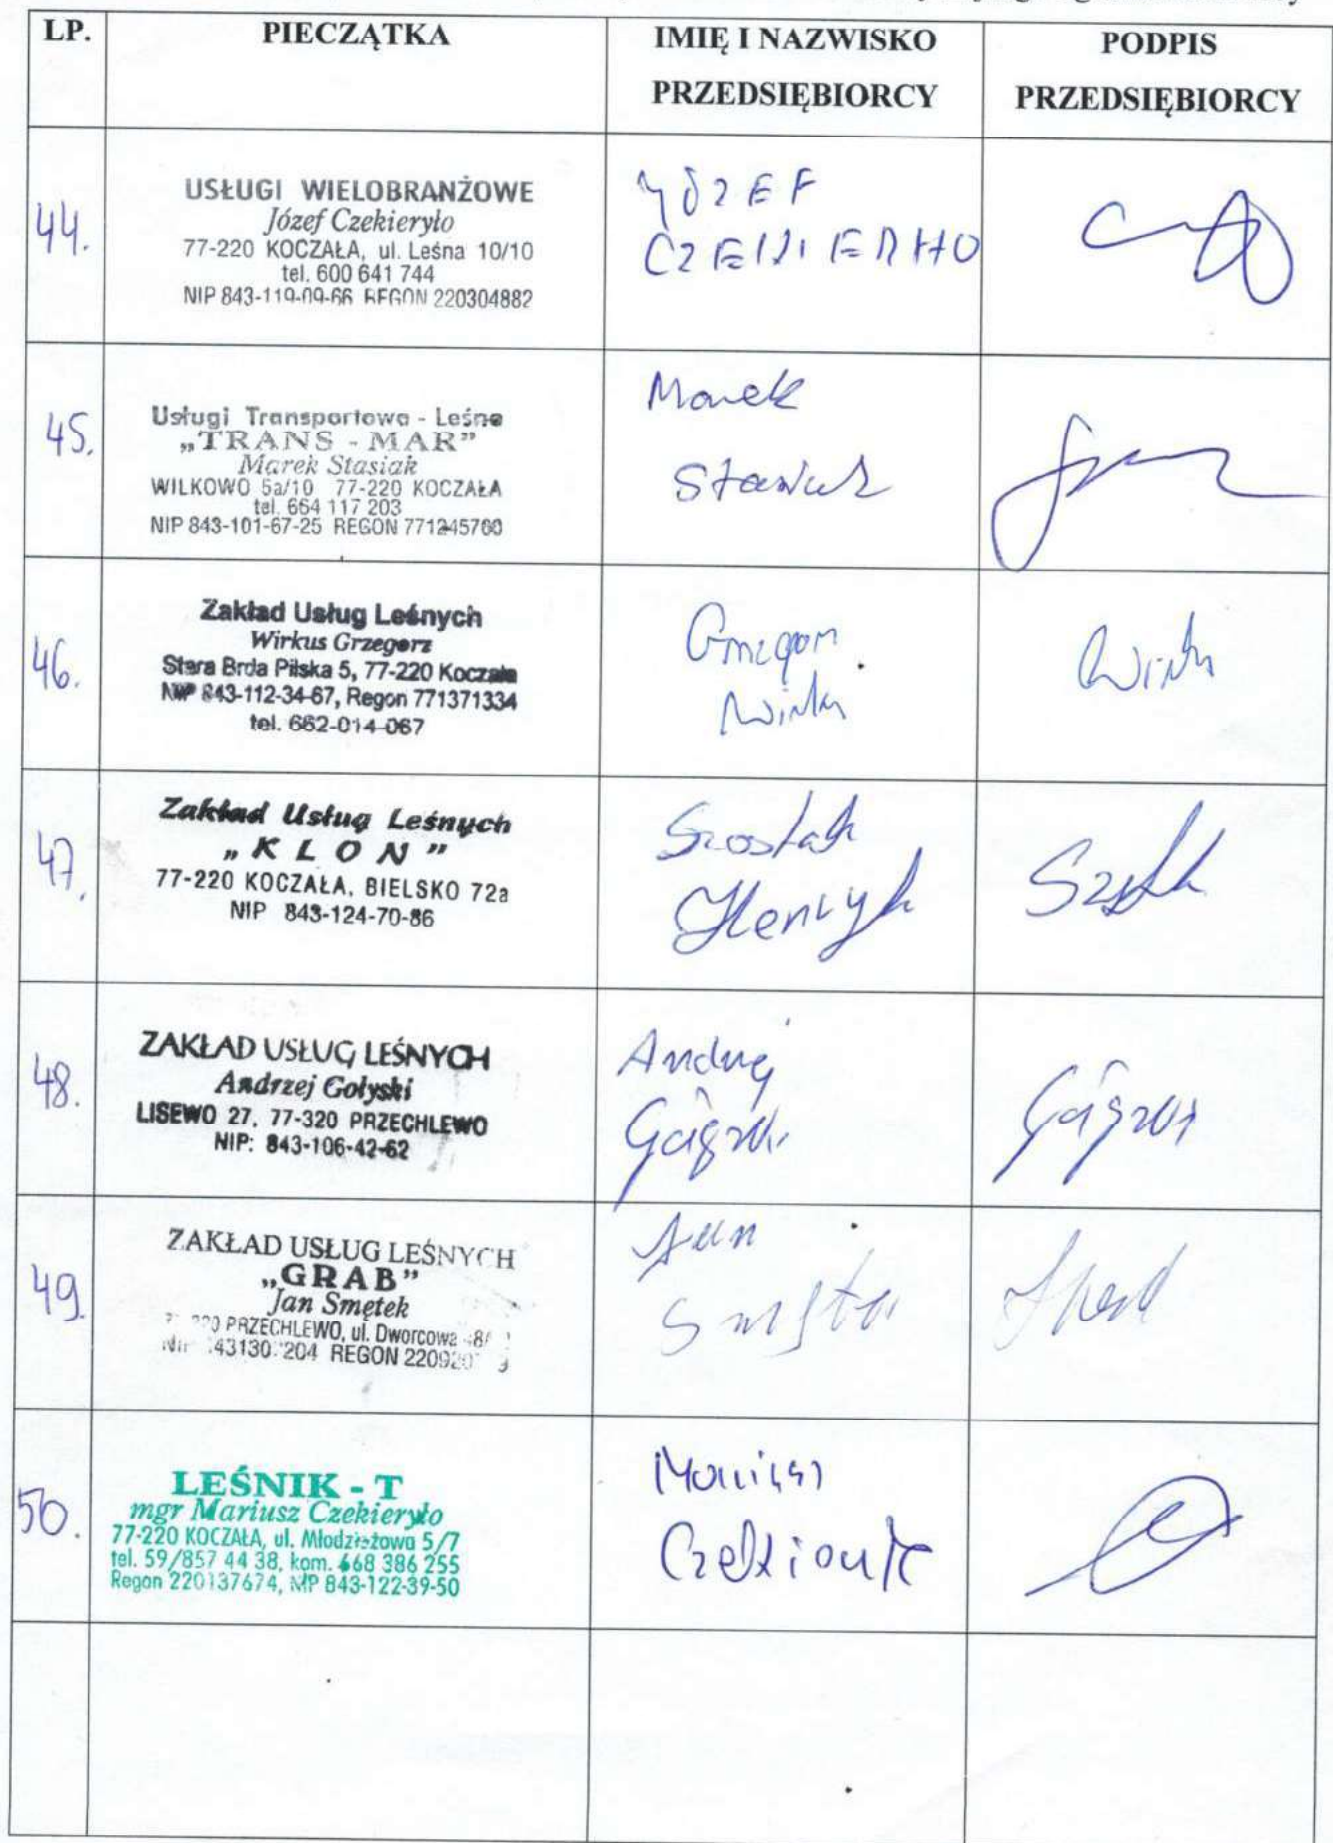 LP.
PIECZĄTKA
IMIĘ I NAZWISKO
PRZEDSIĘBIORCY
PODPIS
PRZEDSIĘBIORCY
44.
USŁUGI WIELOBRANŻOWE
Józef Czekieryło
77-220 KOCZAŁA, ul. Leśna 10/10
tel. 600 641 744
NIP 843-119-09-66 REGON 220304882
JÓZEF
45.
Usługi Transportowo - Leśne
„TRANS - MAR”
Marek Stasiak
WILKOWO 5a/10 77-220 KOCZAŁA
tel. 664 117 203
NIP 843-101-67-25 REGON 771245760
Marek
Stasiak
46.
Zakład Usług Leśnych
Wirkus Grzegorz
Stara Brda Pilska 5, 77-220 Koczała
NIP 843-112-34-67, Regon 771371334
tel. 662-014-067
Grzegorz
Wirkus
47.
Zakład Usług Leśnych
„KLON”
77-220 KOCZAŁA, BIELSKO 72a
NIP 843-124-70-86
Szostak
Henryk
48.
ZAKŁAD USŁUG LEŚNYCH
Andrzej Gołyski
LISEWO 27, 77-320 PRZECHLEWO
NIP: 843-106-42-62
Andrzej
49.
ZAKŁAD USŁUG LEŚNYCH
„GRAB”
Jan Smętek
PRZECHLEWO, ul. Dworcowa
REGON
Jan
50.
LEŚNIK - T
mgr Mariusz Czekieryło
77-220 KOCZAŁA, ul. Młodzieżowa 5/7
tel. 59/857 44 38, kom. 668 386 255
Regon 220137674, NIP 843-122-39-50
Mariusz